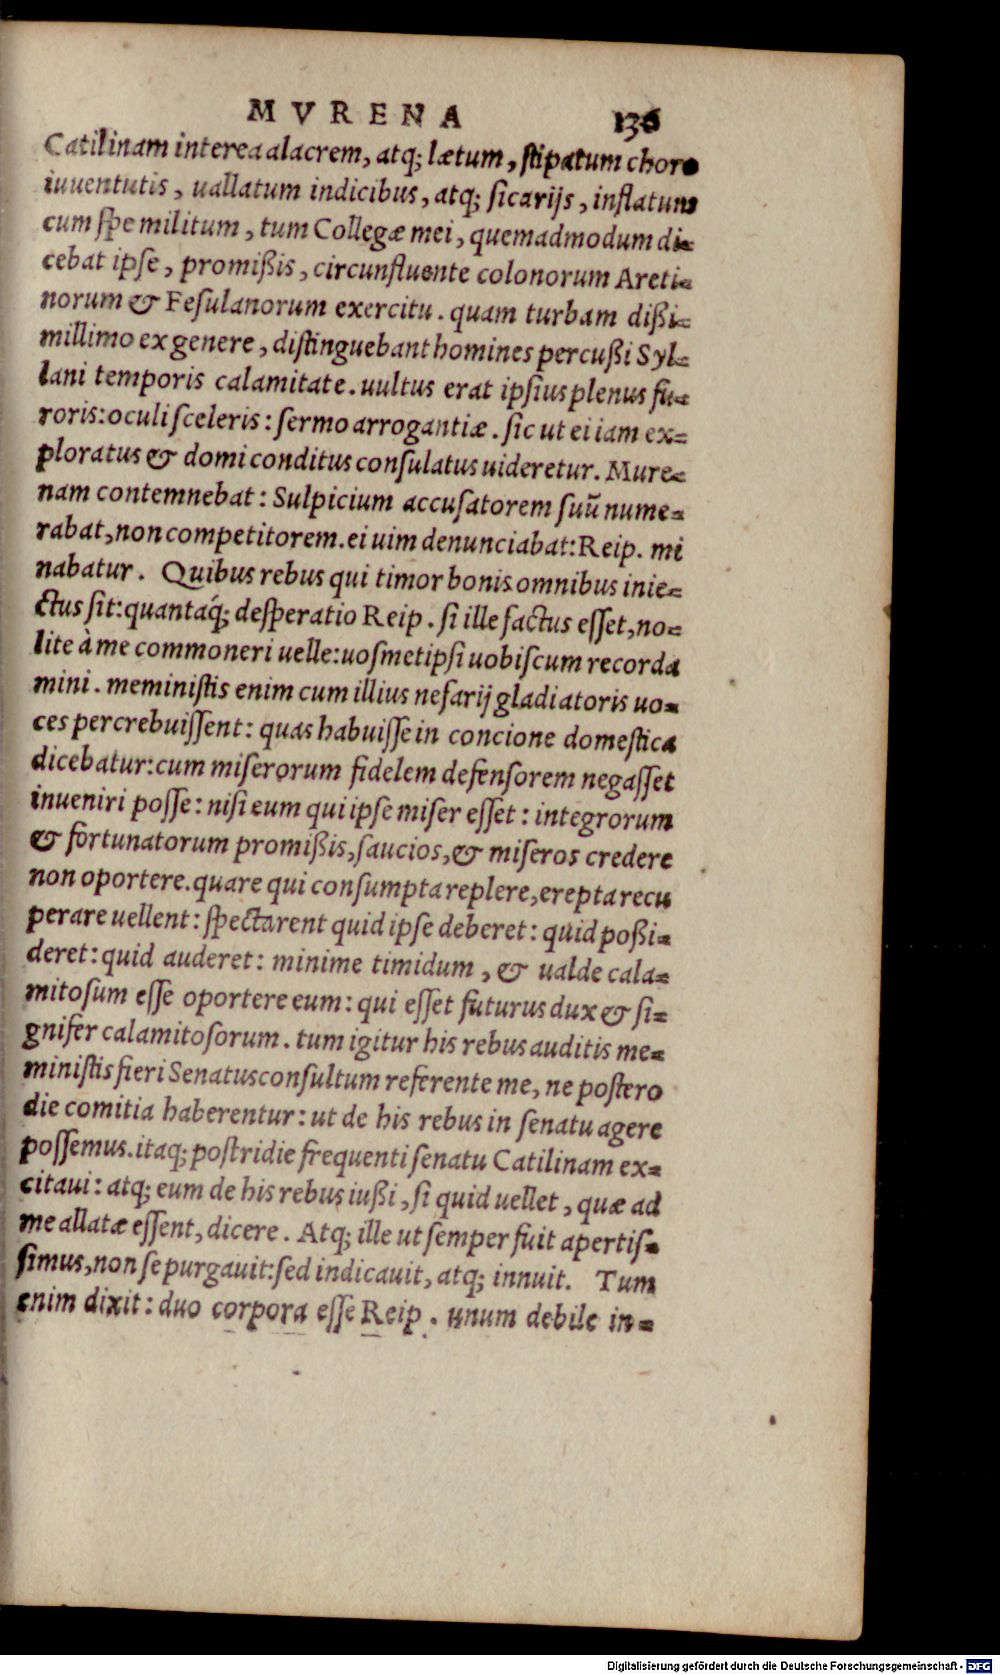 MVRENA 136
Catilinam interea alacrem, atq; lætum, ſtipatum choro
iuuentutis, uallatum indicibus, atq; ſicarijs, inflatum
cum ſpe militum, tum Collegæ mei, quemadmodum di=
cebat ipſe, promißis, circunfluente colonorum Areti=
norum & Feſulanorum exercitu. quam turbam dißi=
millimo ex genere, diſtinguebant homines percußi Syl=
lani temporis calamitate. uultus erat ipſius plenus fu=
roris: oculi ſceleris: ſermo arrogantiæ. ſic ut ei iam ex=
ploratus & domi conditus conſulatus uideretur. Mure=
nam contemnebat: Sulpicium accuſatorem ſuū nume=
rabat, non competitorem. ei uim denunciabat: Reip. mi
nabatur. Quibus rebus qui timor bonis omnibus inie=
ctus ſit: quantaq́; deſperatio Reip. ſi ille factus eſſet, no=
lite à me commoneri uelle: uoſmetipſi uobiſcum recorda
mini. meminiſtis enim cum illius nefarij gladiatoris uo=
ces percrebuiſſent: quas habuiſſe in concione domeſtica
dicebatur: cum miſerorum fidelem defenſorem negaſſet
inueniri poſſe: niſi eum qui ipſe miſer eſſet: integrorum
& fortunatorum promißis, ſaucios, & miſeros credere
non oportere. quare qui conſumpta replere, erepta recu
perare uellent: ſpectarent quid ipſe deberet: quid poßi=
deret: quid auderet: minime timidum, & ualde cala=
mitoſum eſſe oportere eum: qui eſſet futurus dux & ſi=
gnifer calamitoſorum. tum igitur his rebus auditis me=
miniſtis fieri Senatusconſultum referente me, ne poſtero
die comitia haberentur: ut de his rebus in ſenatu agere
poſſemus. itaq; poſtridie frequenti ſenatu Catilinam ex=
citaui: atq; eum de his rebus iußi, ſi quid uellet, quæ ad
me allatæ eſſent, dicere. Atq; ille ut ſemper fuit apertiſ=
ſimus, non ſe purgauit: ſed indicauit, atq; innuit. Tum
enim dixit: duo corpora eſſe Reip. unum debile in=
Digitalisierung gefördert durch die Deutsche Forschungsgemeinschaft - DFG